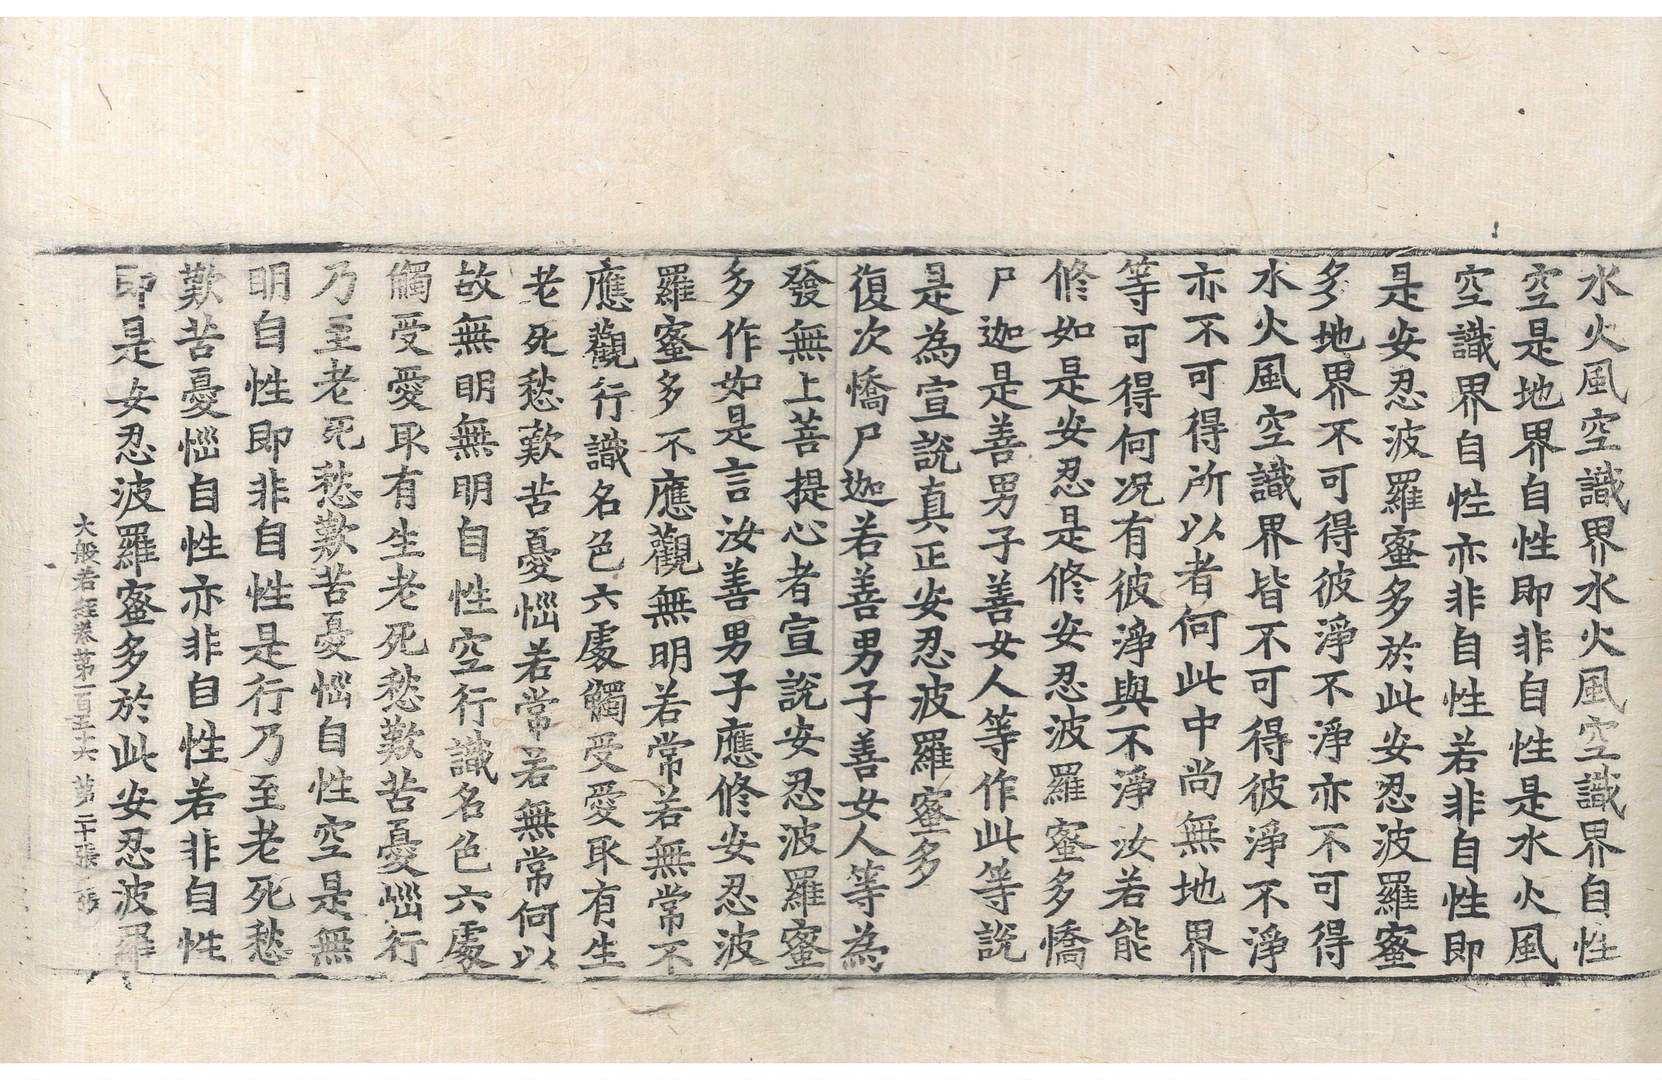 水火風空識界水火風空識界自性
空是地界自性即非自性是水火風
空識界自性亦非自性若非自性即
是安忍波羅蜜多於此安忍波羅蜜
多地界不可得彼淨不淨亦不可得
水火風空識界皆不可得彼淨不淨
亦不可得所以者何此中尚無地界
等可得何况有彼淨與不淨汝若能
修如是安忍是修安忍波羅蜜多憍
尸迦是善男子善女人等作此等說
是為宣說真正安忍波羅蜜多
復次憍尸迦若善男子善女人等為
發無上菩提心者宣說安忍波羅蜜
多作如是言汝善男子應修安忍波
羅蜜多不應觀無明若常若無常不
應觀行識名色六處觸受愛取有生
老死愁歎苦憂惱若常若無常何以
故無明無明自性空行識名色六處
觸受愛取有生老死愁歎苦憂惱行
乃至老死愁歎苦憂惱自性空是無
明自性即非自性是行乃至老死愁
歎苦憂惱自性亦非自性若非自性
即是安忍波羅蜜多於此安忍波羅
大般若經卷第一百五十六 第二十張